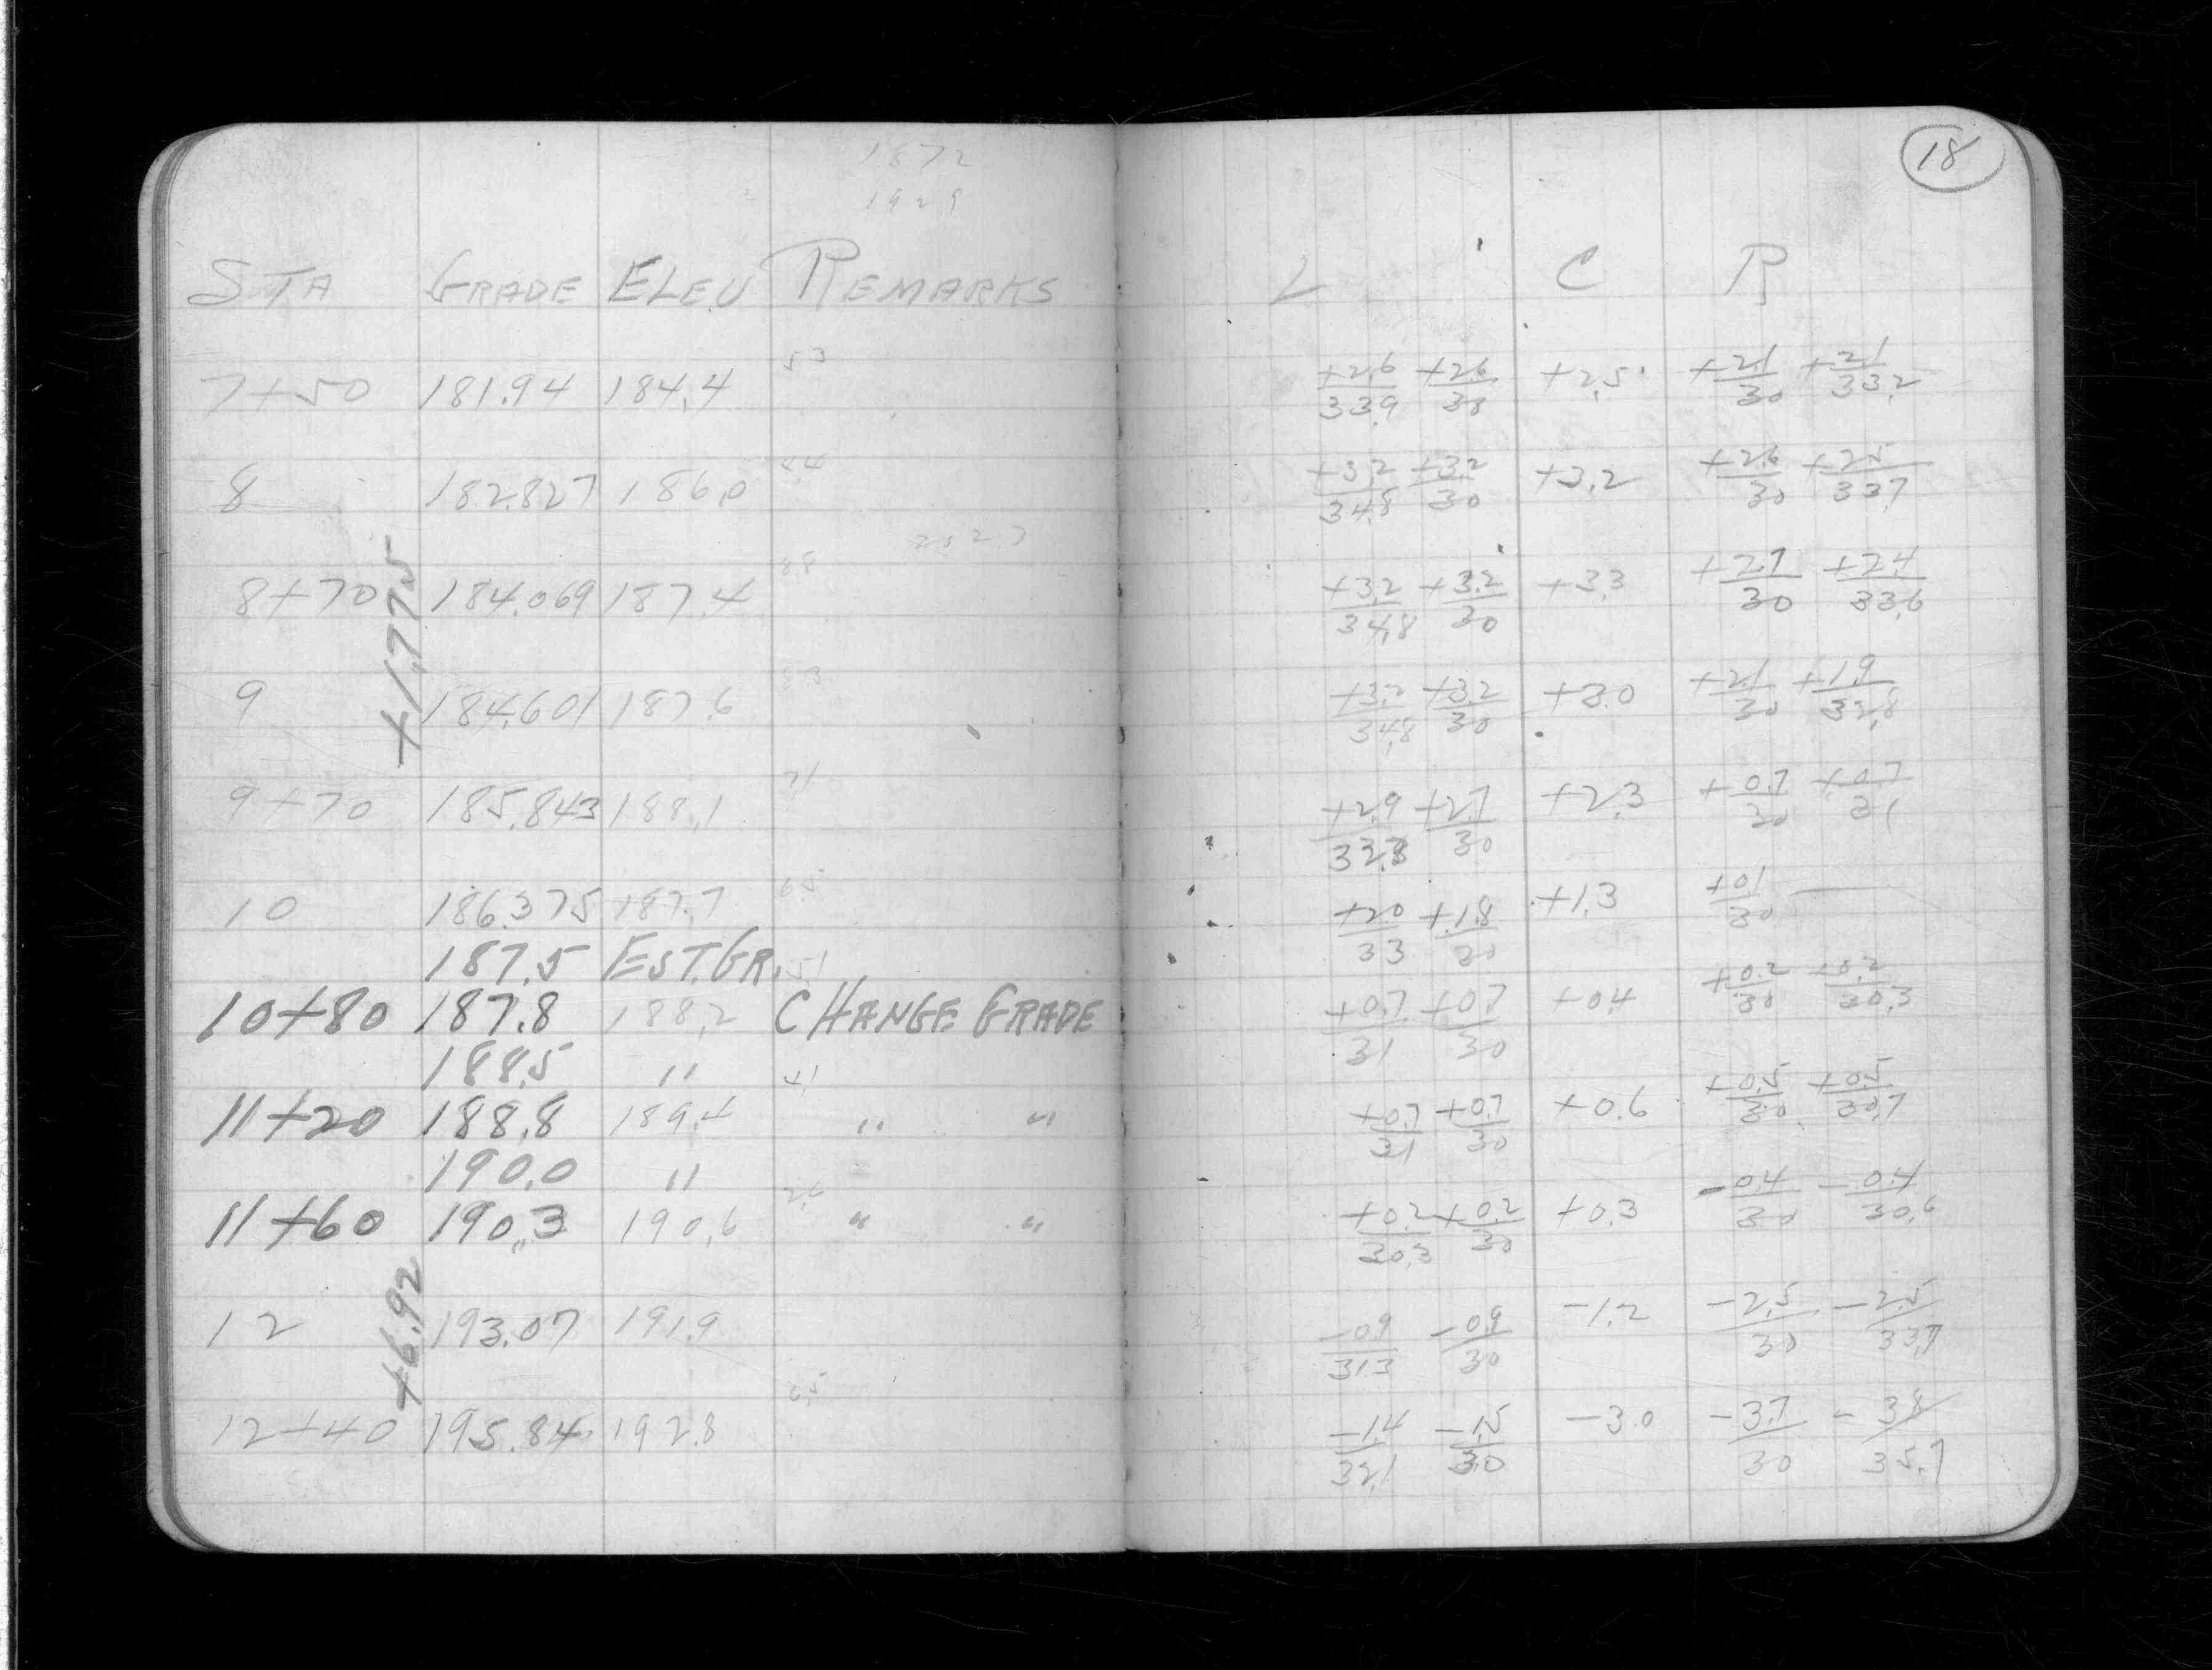 18
187.2
192.9
STA GRADE ELEV REMARKS L C R
7+50 181.94 184.4 5.3 +2.6/33.9 +2.6/30 +2.5 +2.1/30 +2.1/33.2
8 182.827 186.0 4.4 +3.2/34.8 +3.2/30 +3.2 +2.6/30 +2.5/33.7
8+70 184.069 187.4 8.8 +3.2/34.8 +3.2/30 +3.3 +2.7/30 +2.4/33.6
+1.775
9 184.601 187.6 8.3 +3.2/34.8 +3.2/30 +3.0 +2.1/30 +1.9/32.8
9+70 185.843 188.1 7.1 +2.9/32.3 +2.7/30 +2.3 +0.7/30 +0.7/31
10 186.375 187.7 6.5 +2.0/33 +1.8/30 +1.3 +0.1/30 —
187.5 EST. GR. 5.1
10+80 187.8 188.2 CHANGE GRADE +0.7/31 +0.7/30 +0.4 +0.2/30 +0.2/30.3
188.5 " 4.1
11+20 188.8 189.4 " " +0.7/31 +0.7/30 +0.6 +0.5/30 +0.5/30.7
190.0 "
11+60 190.3 190.6 " " +0.2/30.3 +0.2/30 +0.3 -0.4/30 -0.4/30.6
+6.92
12 193.07 191.9 -0.9/31.3 -0.9/30 -1.2 -2.5/30 -2.5/33.7
12+40 195.84 192.8 0.5 -1.4/32.1 -1.5/30 -3.0 -3.7/30 -3.8/35.7